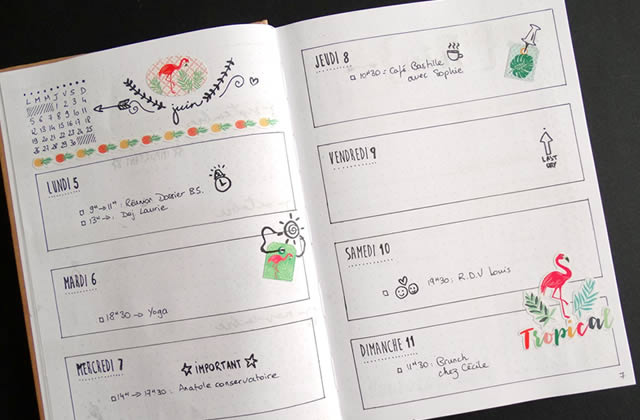 L M M J V S D
1 2 3 4
5 6 7 8 9 10 11
12 13 14 15 16 17 18
19 20 21 22 23 24 25
26 27 28 29 30
juin
LUNDI 5
9H → 11H : Réunion Dossier B.S.
13H → : Dej Laurie
MARDI 6
18H30 → Yoga
MERCREDI 7
IMPORTANT
14H → 17H30 : Anatole conservatoire
JEUDI 8
10H30 : Café Bastille
avec Sophie
VENDREDI 9
LAST
DAY
SAMEDI 10
19H30 : R.D.V Louis
Tropical
DIMANCHE 11
11H30 : Brunch
chez Cécile
7